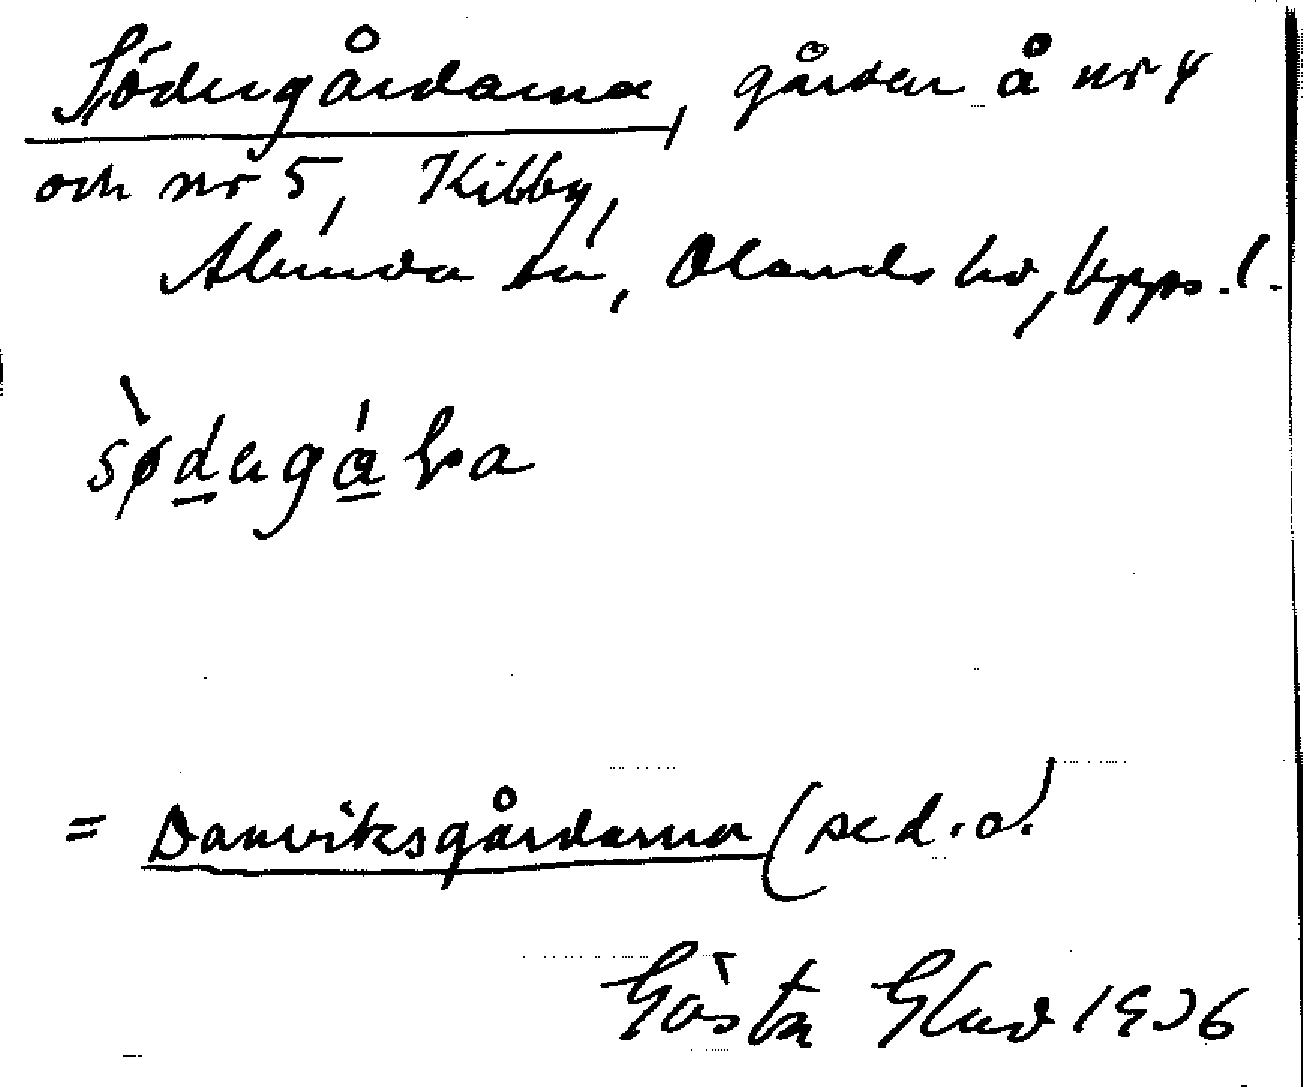 Södergårdarna, gårdar å nr 4
och nr 5, Kibby,
Alunda sn, Olands hd, Upps. l.
= Danviksgårdarna (se d. o.)
Gösta Glad 1936